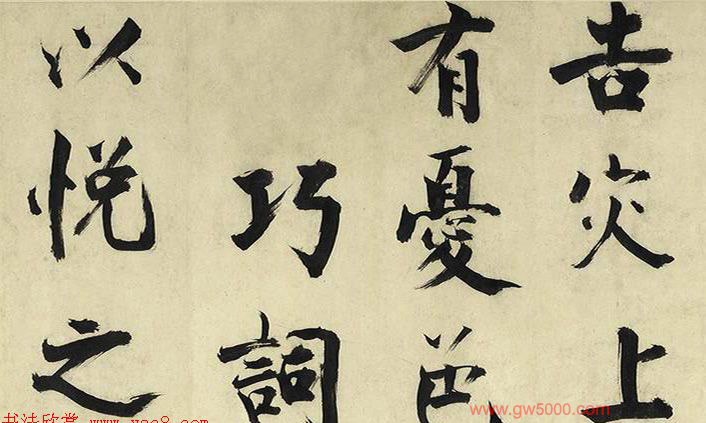 告灾上
有憂色
巧詞
以悦之
书法欣赏 www.yac8.com
www.gw5000.com